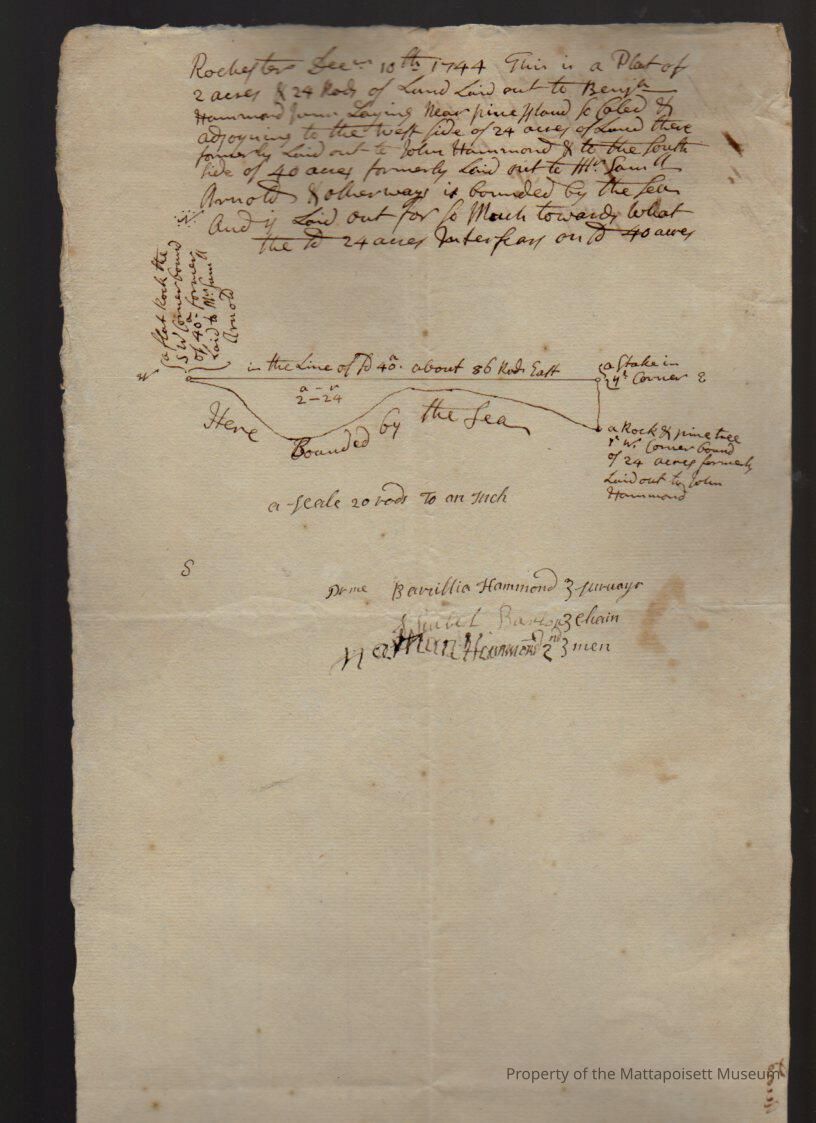 Rochester Decem 10th 1744 This is a Plat of
2 acres & 24 Rods of Land Laid out to Benja
Hammond Junr Laying Near pine Island so Caled &
adjoyning to the West side of 24 acres of Land there
formerly Laid out to John Hammond & to the South
side of 40 acres formerly Laid out to Mr Samll
Arnold & otherways is bounded by the Sea
And is Laid out for so Much towards What
the sd 24 acres Interfears on sd 40 acres
N
a flat Rock the
S W Corner bound
of 40 a formerly
Laid to Mr Samll
Arnold
W
in the Line of sd 40 a. about 86 Rods East
a Stake in
ye Corner
E
a - r
2 - 24
Here Bounded by the Sea
a Rock & pine tree
ye W. Corner bound
of 24 acres formerly
Laid out to John
Hammond
a Scale 20 rods To an Inch
S
Pr me Barzillia Hammond surveyr
Barlow chain
Nathan Hammond 2nd men
Property of the Mattapoisett Museum